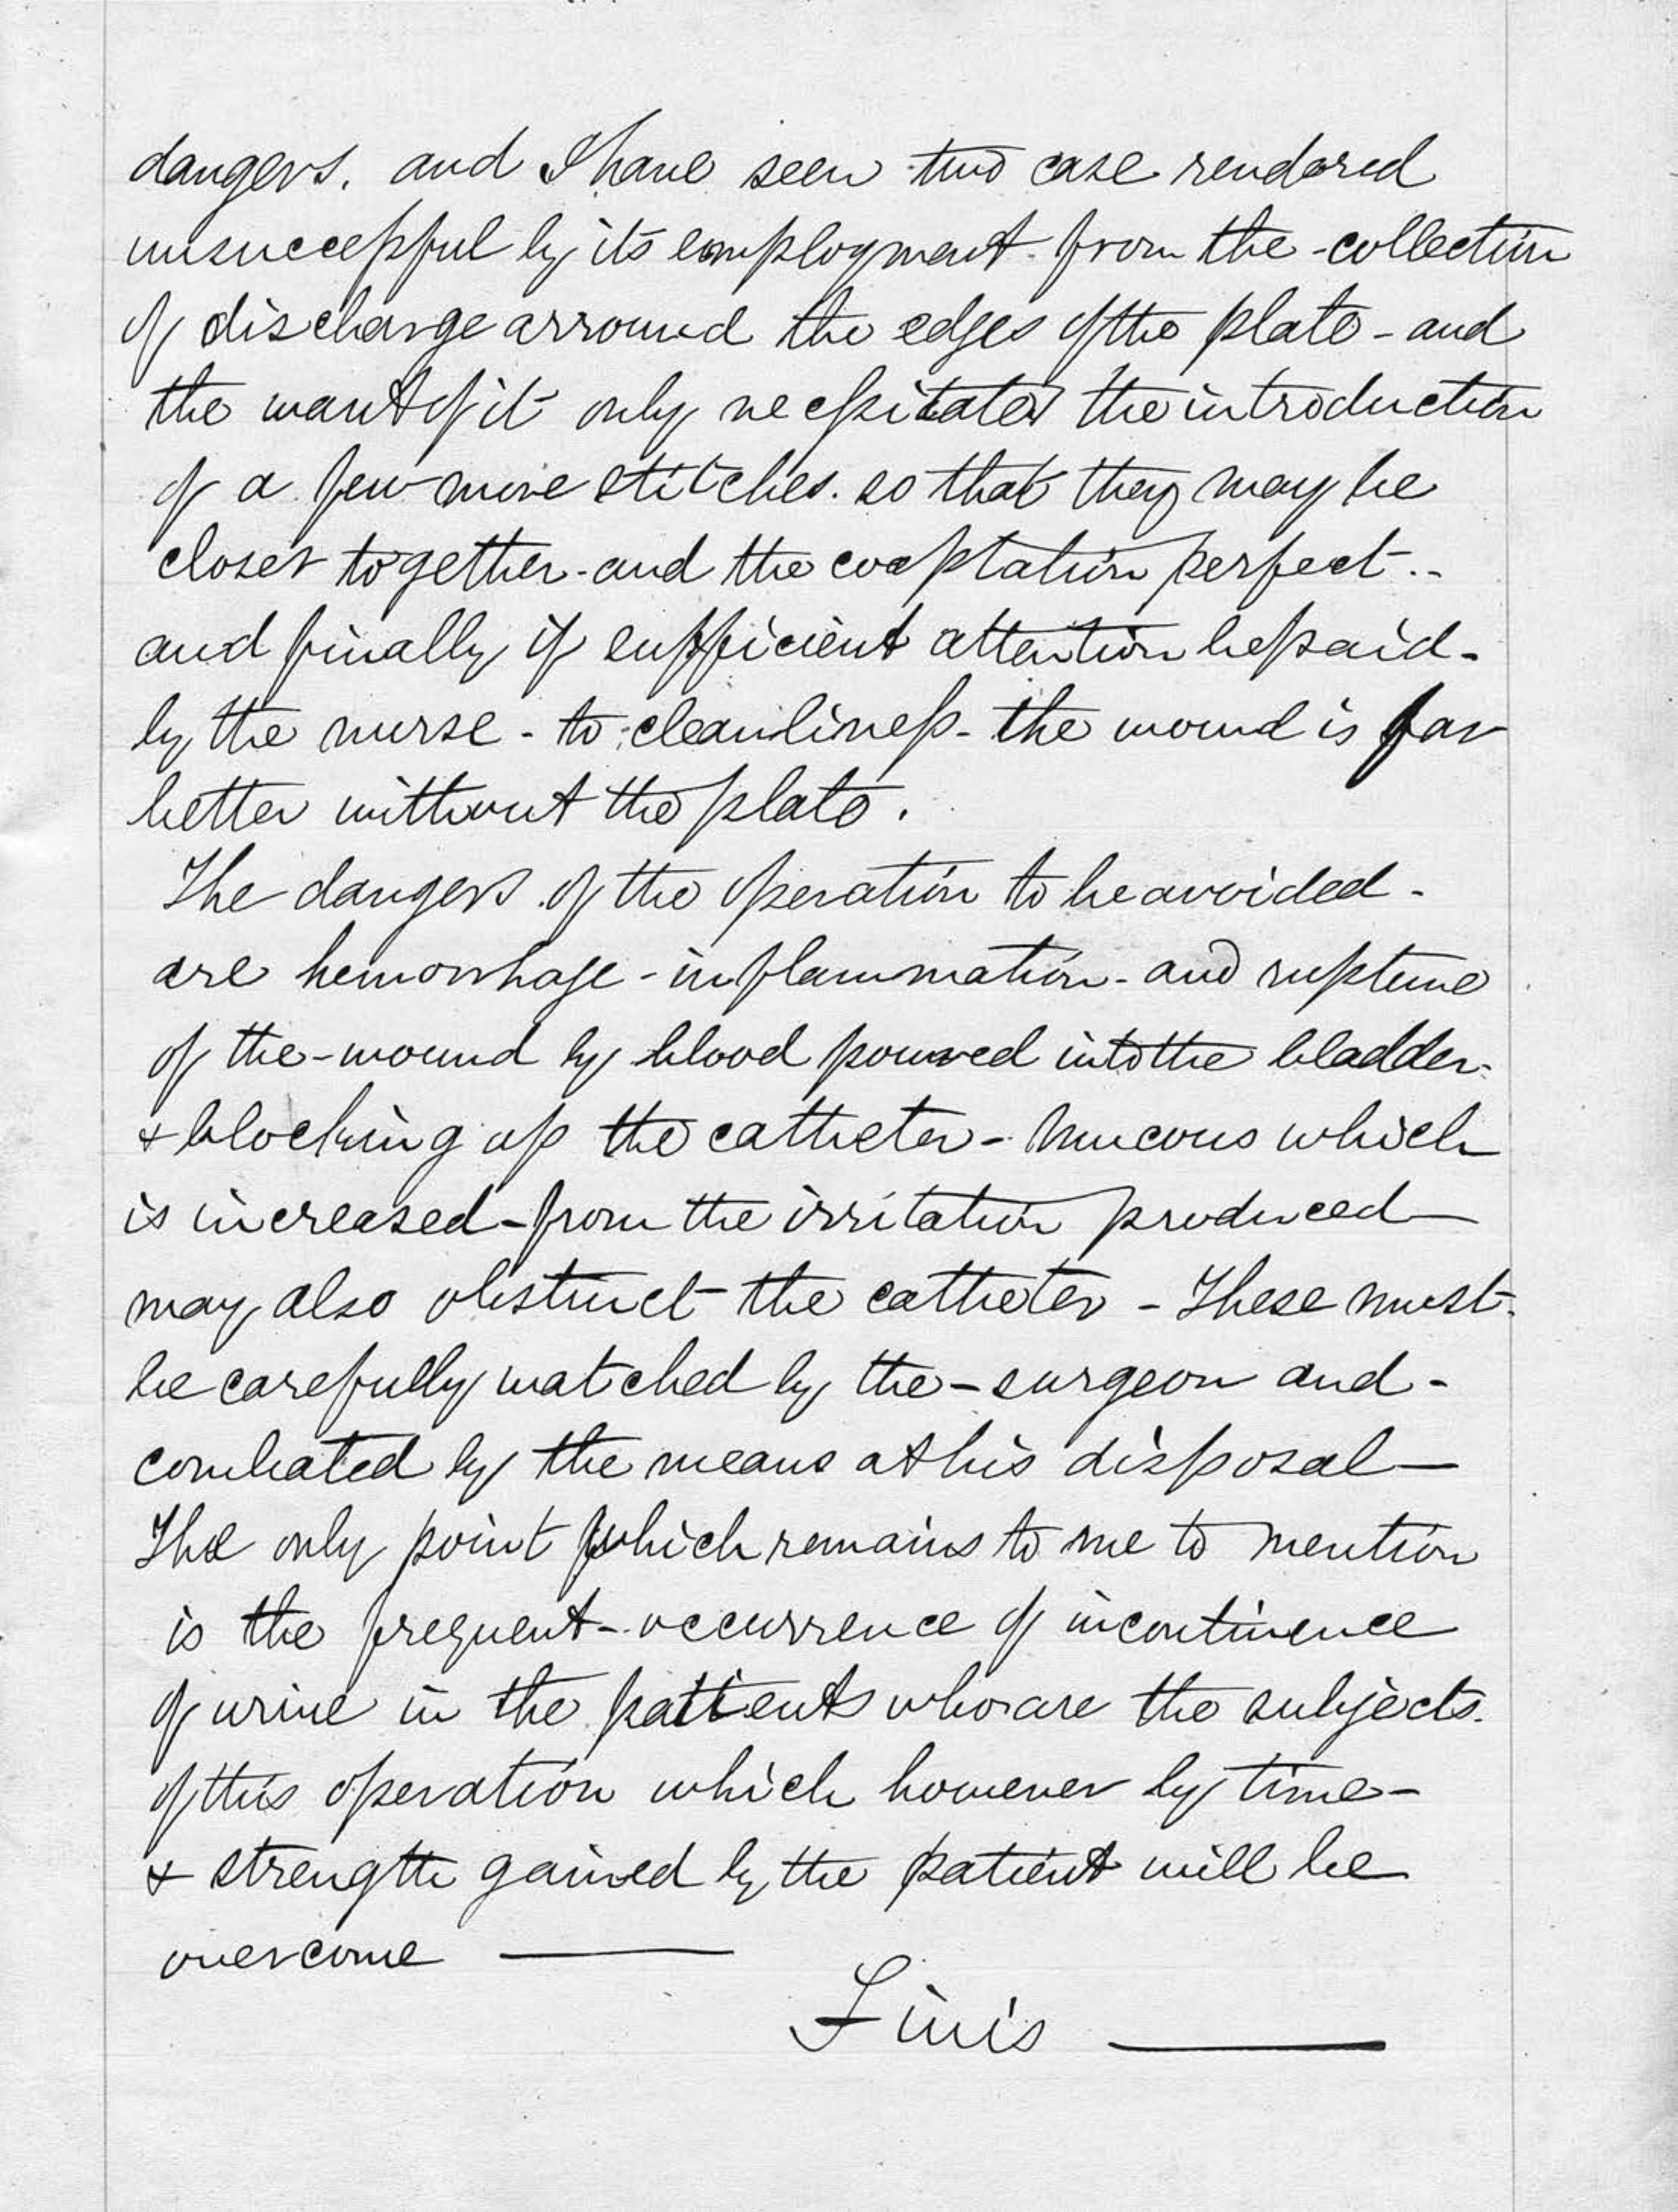 dangers. and I have seen two case rendered
unsuccessful by its employment from the collection
of discharge arround the edges of the plate - and
the want of it only necessitates the introduction
of a few more stitches. so that they may be
closer together - and the coaptation perfect..
and finally if sufficient attention be paid -
by the nurse - to cleanliness - the wound is far
better without the plate.
The dangers of the operation to be avoided -
are hemorrhage - inflammation - and rupture
of the - wound by blood poured into the bladder -
& blocking up the catheter - Mucous which
is increased - from the irritation produced
may also obstruct the catheter - These must
be carefully watched by the - surgeon and -
combated by the means at his disposal —
The only point which remains to me to mention
is the frequent - occurrence of incontinence
of urine in the patients who are the subjects
of this operation which however by time -
& strength gained by the patient will be
overcome ———
Finis ———